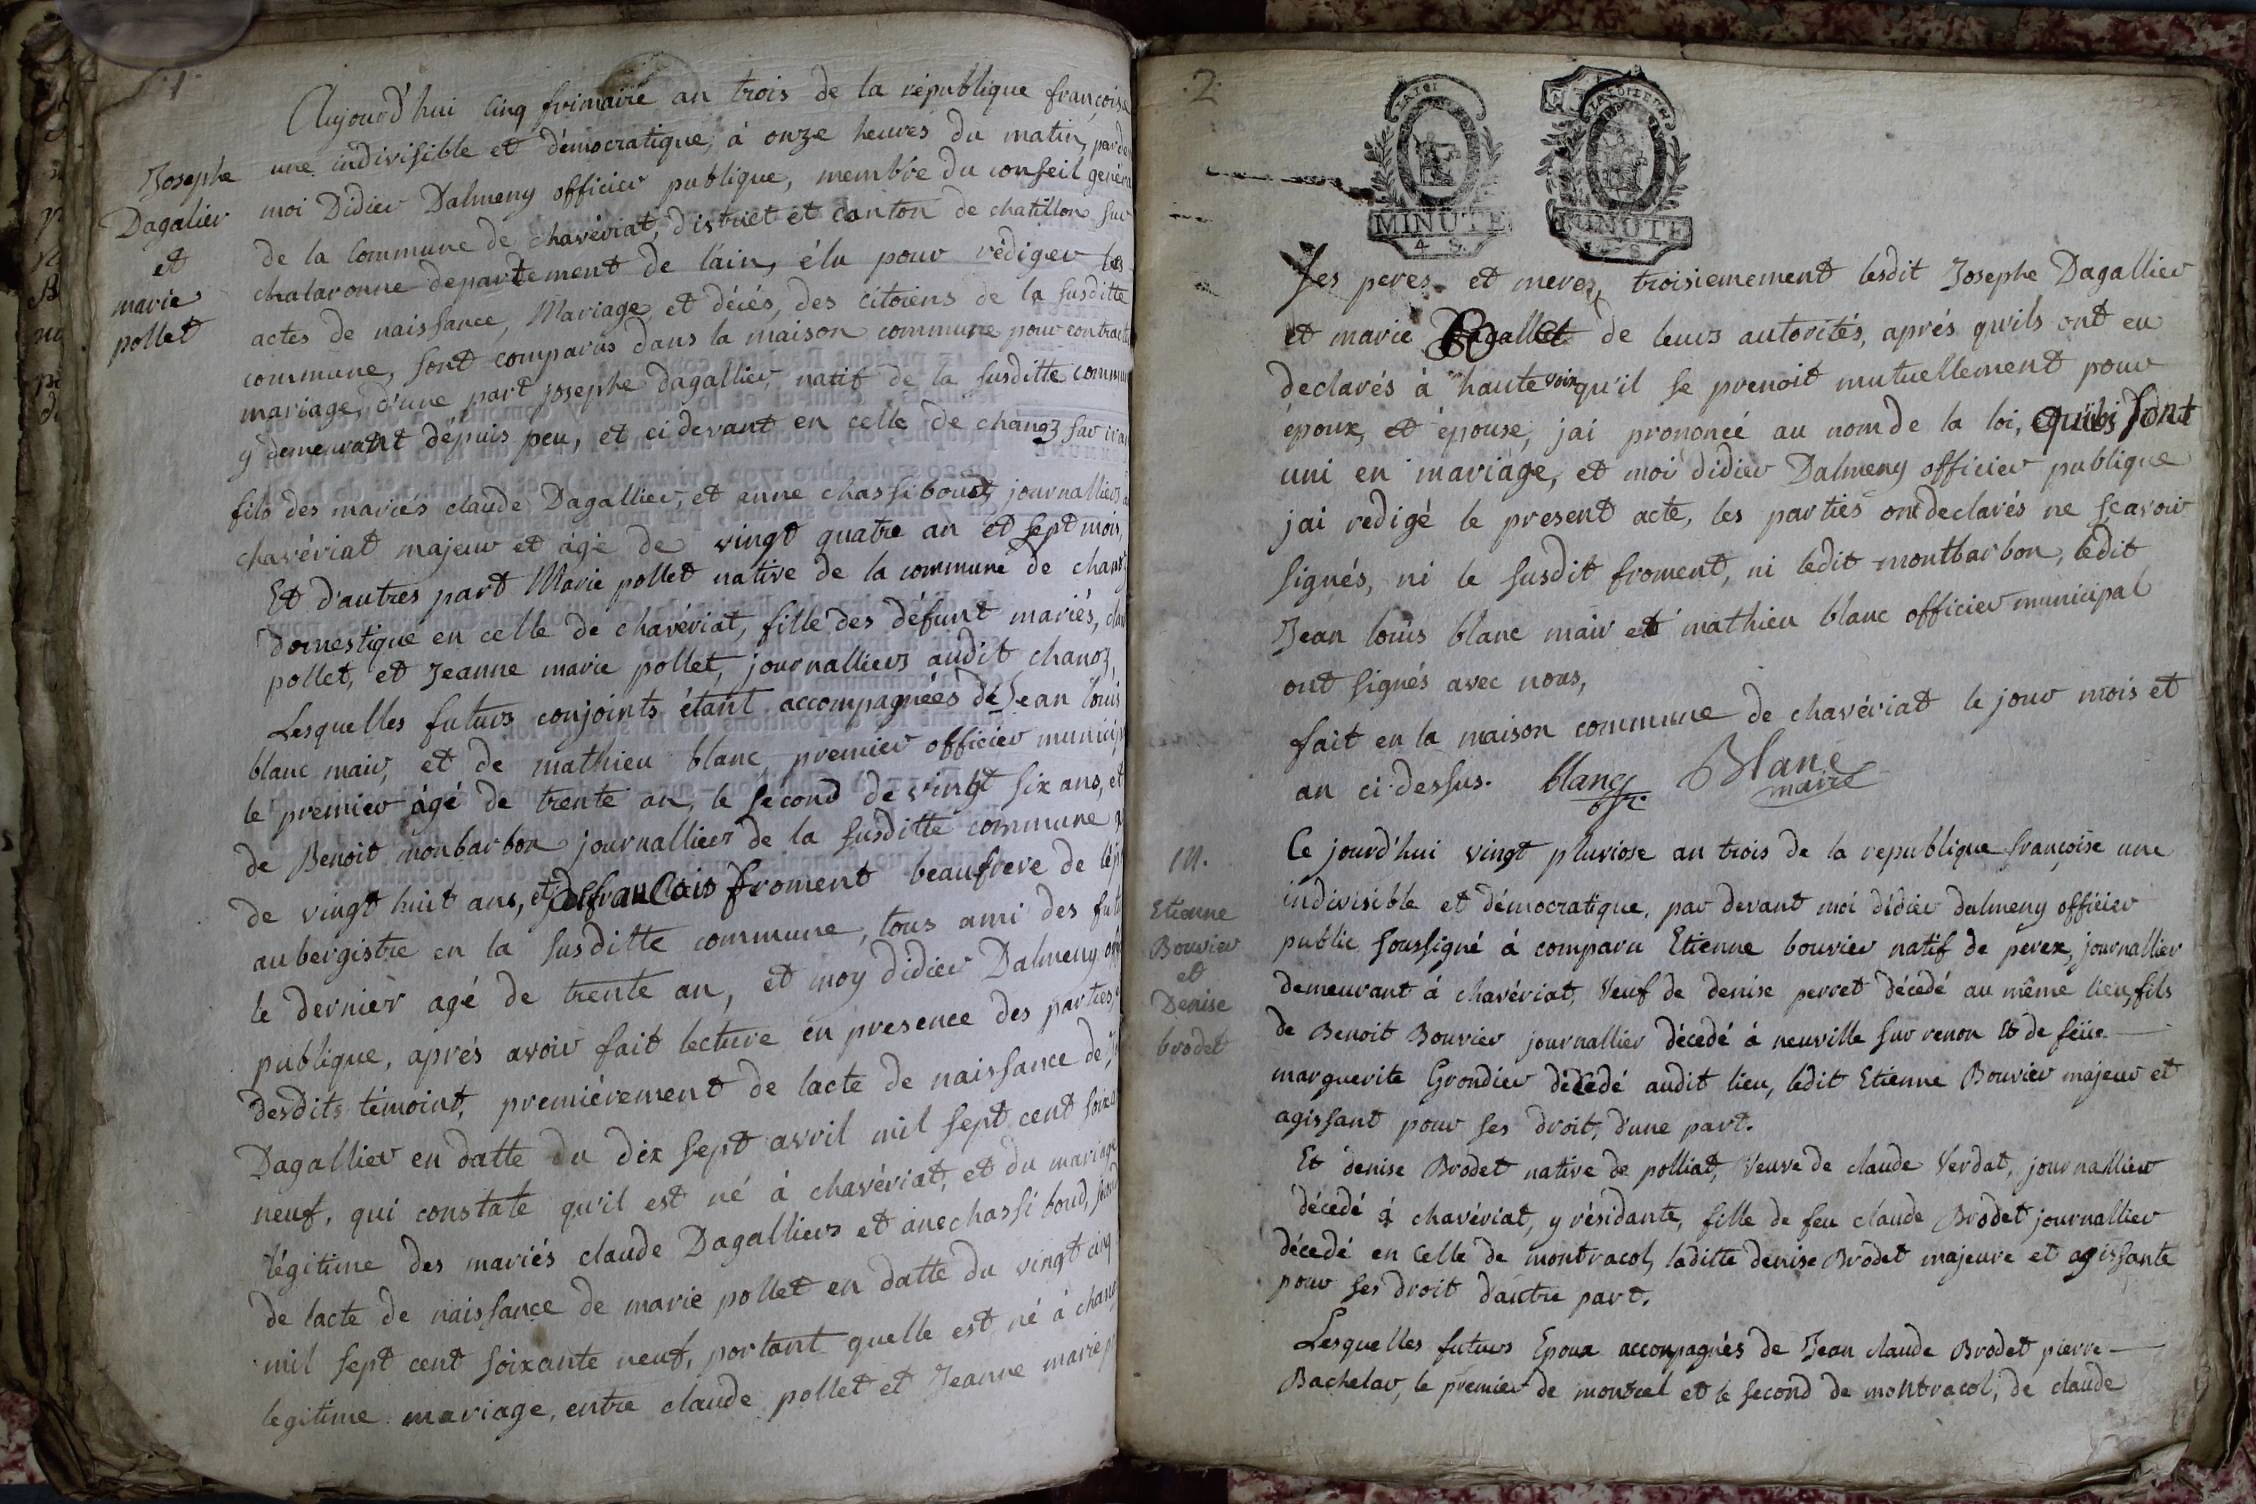 1.
Aujourd'hui cinq frimaire an trois de la république françoise
une indivisible et démocratique, à onze heures du matin, parde
moi Didier Dalmeny officier publique, membre du conseil généra
de la Commune de chavériat, district et canton de chatillon sur
chalaronne departement de l'ain, élu pour rédiger les
actes de naissance, Mariage, et décés, des citoiens de la susditte
commune, sont comparus dans la maison commune pour contract
mariage, d'une part josephe dagallier, natif de la susditte commun
y demeurant dépuis peu, et ci devant en celle de chanoz sur
fils des mariés claude Dagallier, et anne chassiboud, journalliers
chavériat majeur et agé de vingt quatre an et sept mois,
Et d'autres part Marie pollet native de la commune de chanoz
domestique en celle de chavériat, fille des défunt mariés, clau
pollet, et Jeanne marie pollet, journalliers audit chanoz,
Lesquelles futurs conjoints étant accompagnées de Jean louis
blanc mair, et de mathieu blanc premier officier municip
le premier agé de trente an, le second de vingt six ans, et
de Benoit monbarbon journallier de la susditte commune
de vingt huit ans, et de francois froment beaufrere de lép
aubergistre en la susditte commune, tous ami des futu
le dernier agé de trente an, et moy didier Dalmeny off
publique, aprés avoir fait lecture en presence des parties,
desdits témoint, premiérement de lacte de naissance de
Dagallier en datte du dix sept avril mil sept cent soixa
neuf, qui constate qu'il est né à chavériat, et du mariage
légitime des mariés claude Dagalliers et ane chassiboud,
de lacte de naissance de marie pollet en datte du vingt cinq
mil sept cent soixante neuf, portant quelle est né à chano
legitime mariage, entre claude pollet et Jeanne marie p
Josephe
Dagalier
et
marie
pollet
2.
MINUTE
4 S.
MINUTE
Ses peres et meres, troisiemement lesdit Josephe Dagallier
et marie de leurs autorités, aprés qu'ils ont eu
declarés à haute voix qu'il se prenoit mutuellement pour
époux, et épouse, jai prononcé au nom de la loi, qu'ils sont
uni en mariage, et moi didier Dalmeny officier publique
jai redigé le present acte, les parties ont declarés ne scavoir
signés, ni le susdit froment, ni ledit montbarbon, ledit
Jean louis blanc mair et mathieu blanc officier municipal
ont signés avec nous,
fait en la maison commune de chavériat le jour mois et
an ci-dessus. blanc ofr. Blanc
maire
M.
Etienne
Bouvier
et
Denise
brodet
Ce jourd'hui vingt pluviose an trois de la republique françoise une
indivisible et démocratique, par devant moi didier dalmeny officier
public soussigné à comparu Etienne bouvier natif de perex, journallier
demeurant à chavériat, Veuf de denise perret décedé au même lieu, fils
de Benoit Bouvier journallier décedé à neuville sur renon et de feüe
marguerite Grondier décedé audit lieu, ledit Etienne Bouvier majeur et
agissant pour ses droit, d'une part.
Et denise Brodet native de polliat, Veuve de claude Verdat, journallier
décedé à chavériat, y résidante, fille de feu claude Brodet journallier
décedé en Celle de montracol, laditte denise Brodet majeure et agissante
pour ses droit d'autre part.
Lesquelles futurs Epoux accompagnés de Jean claude Brodet pierre
Bachelar, le premier de montcel et le second de montracol, de claude